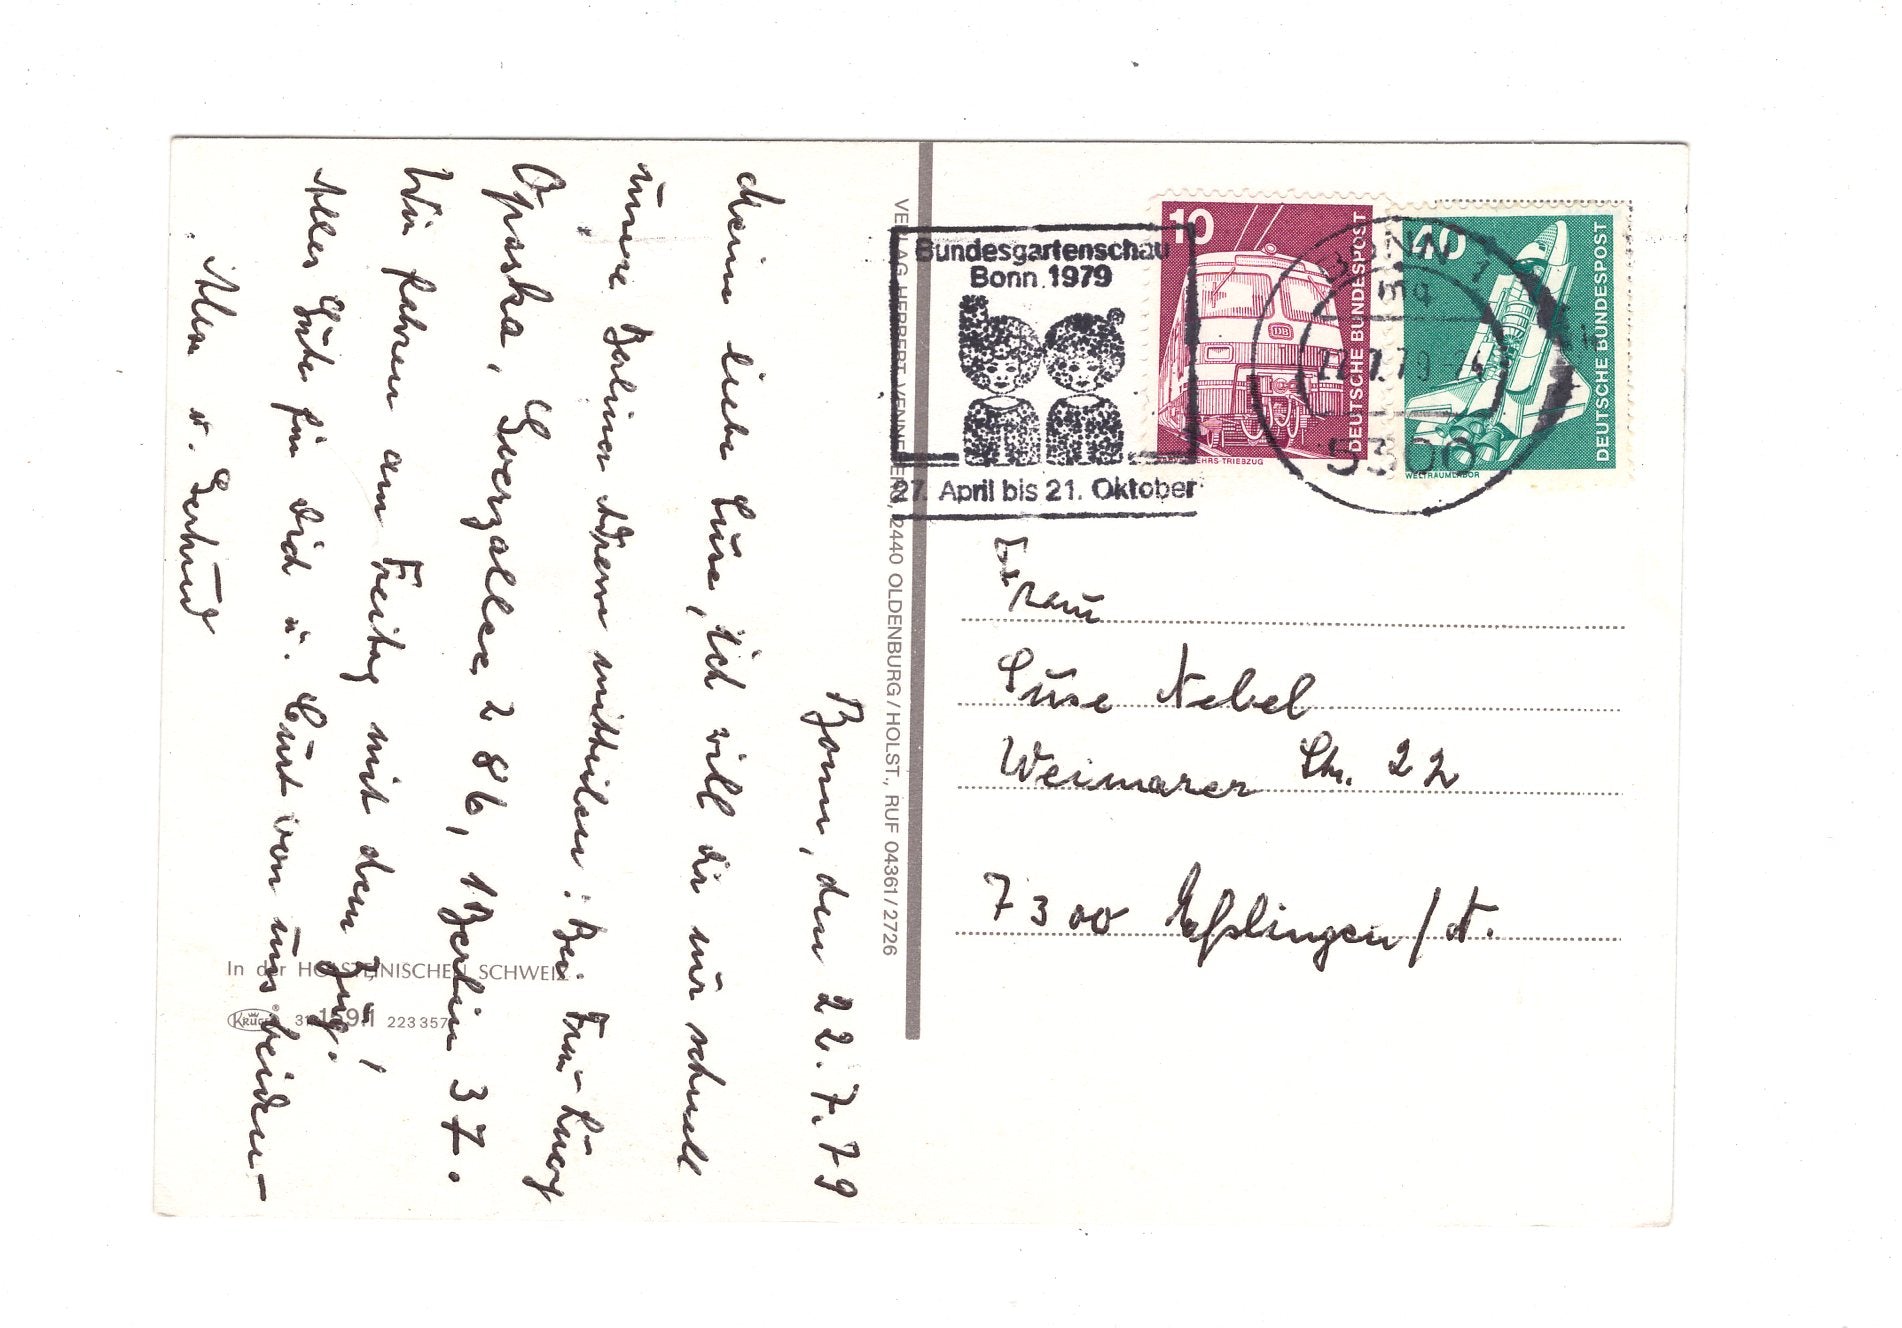 Bonn, den 22.7.79
Meine liebe Suse, ich will dir nur schnell
unsere Berliner Adresse mitteilen: Bei Frau Lucy
Opaska, Goerzallee 286, 1 Berlin 37.
Wir fahren am Freitag mit dem Zug!
Alles Gute für dich u. Curt von uns beiden –
Allen u. Gertrud
In der HOLSTEINISCHEN SCHWEIZ
KRÜGER 159/1 223 357
VERLAG HERBERT VENNEBERN, 2440 OLDENBURG/HOLST., RUF 04361/2726
Bundesgartenschau
Bonn 1979
27. April bis 21. Oktober
10
DEUTSCHE BUNDESPOST
BONN 1
mq
5300
40
DEUTSCHE BUNDESPOST
WELTRAUMLABOR
Frau
Suse Nebel
Weimarer Str. 22
7300 Eßlingen/N.